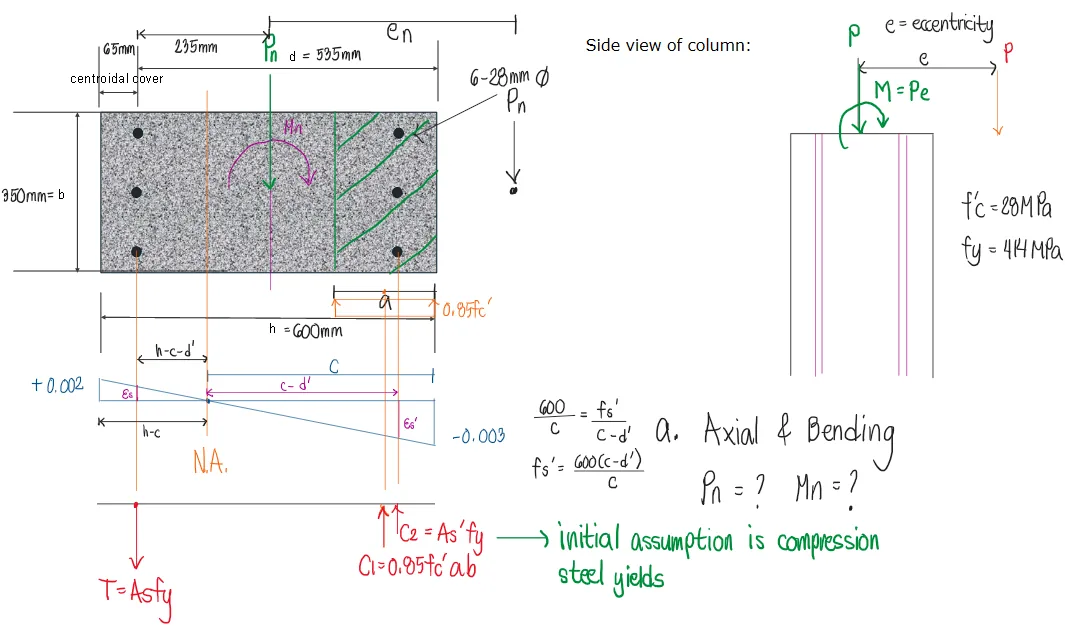 en
65mm
235mm
Pn
d = 535mm
centroidal cover
6-28mm Ø
Pn
Mn
350mm = b
a
0.85fc'
h = 600mm
h-c-d'
c
+0.002
εs
c-d'
εs'
h-c
-0.003
N.A.
T = Asfy
C2 = As'fy
C1=0.85fc'ab
initial assumption is compression
steel yields
600/c = fs'/c-d'
fs' = 600(c-d')/c
a. Axial & Bending
Pn = ? Mn = ?
Side view of column:
e = eccentricity
P
P
e
M = Pe
f'c = 28MPa
fy = 414MPa